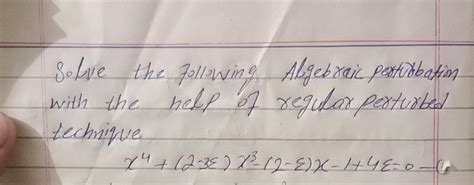 Solve the following Algebraic perturbation
with the help of regular perturbed
technique
x⁴ + (2-3ε) x³ - (2-ε)x - 1 + 4ε = 0 —